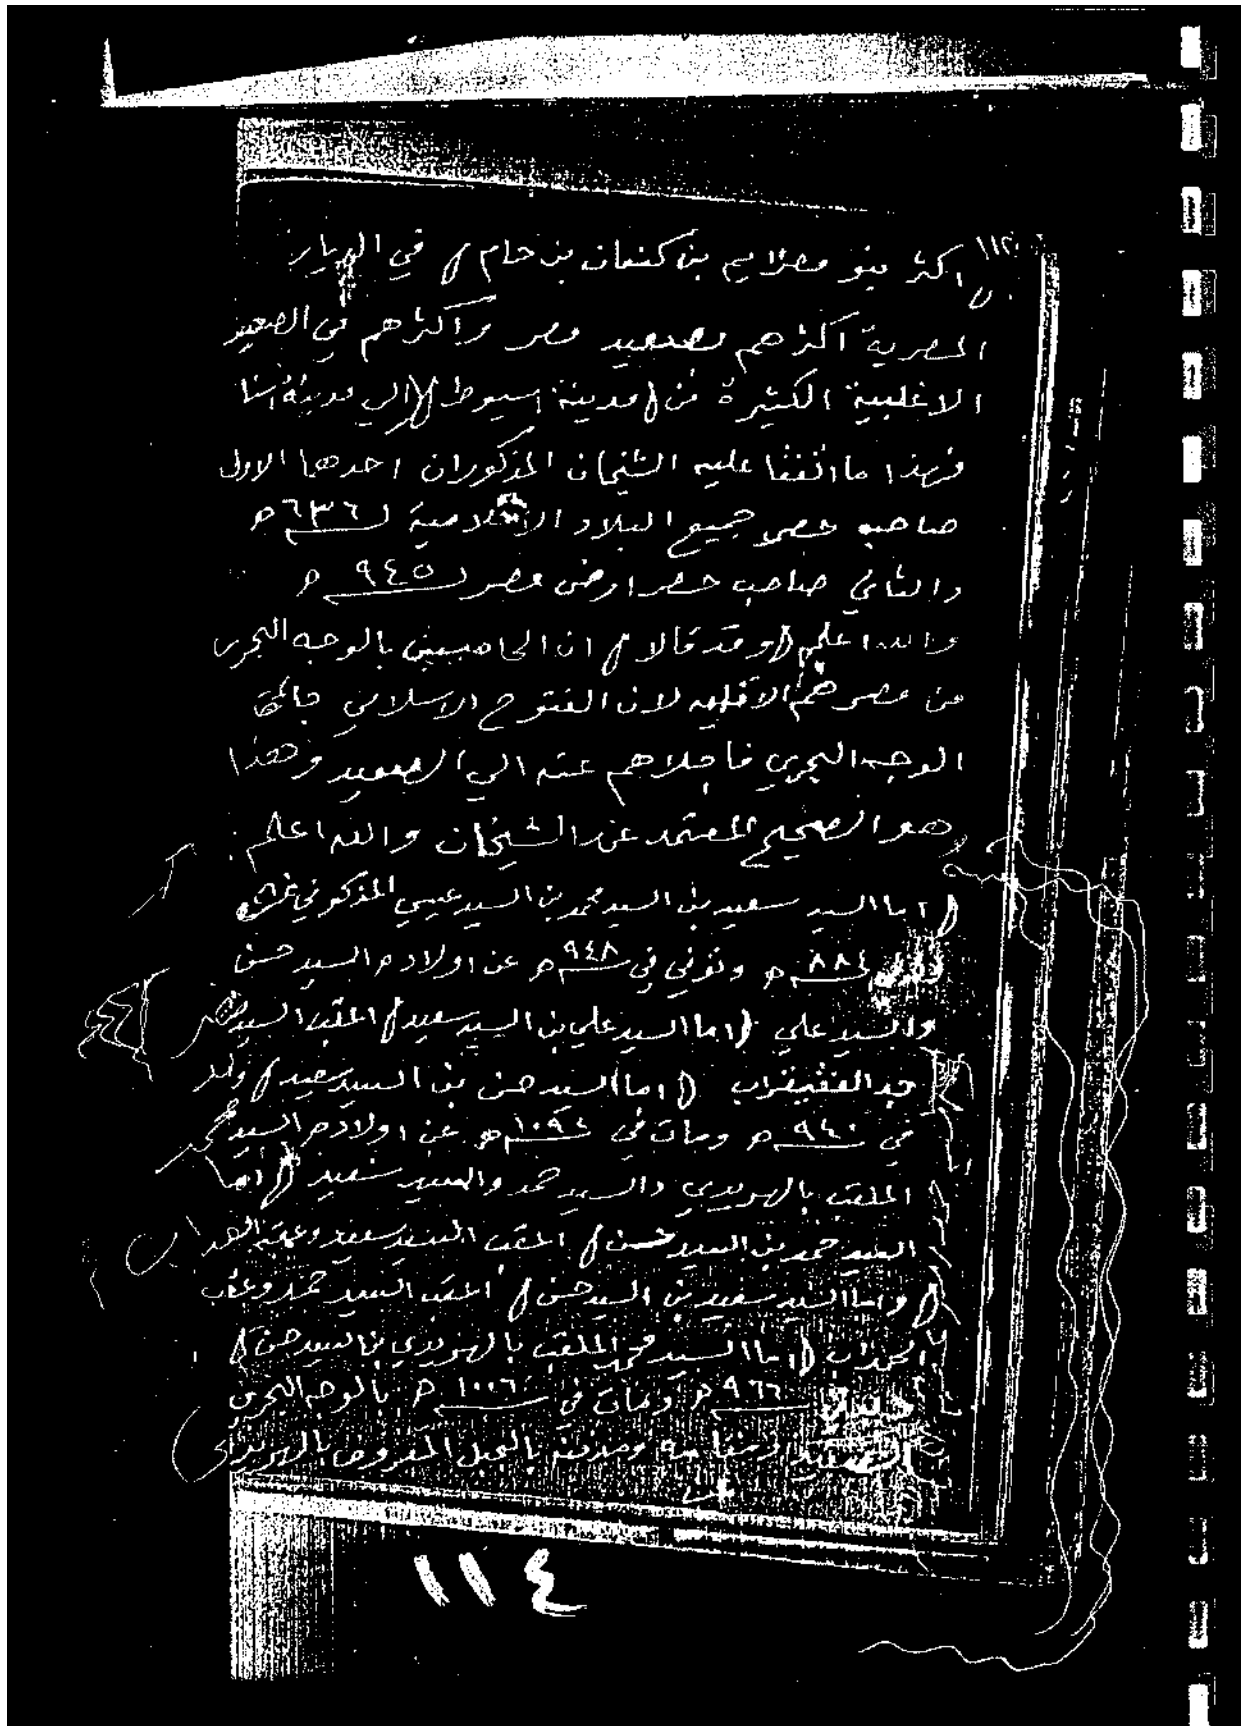 ١١٢
اكثر بنو مصرايم بن كنعان بن حام في الديار
المصرية اكثرهم بصعيد مصر واكثرهم في الصعيد
الاغلبية الكثيرة من مدينة اسيوط الي مدينة اسنا
فهذا ما اتفقا عليه الشيخان المذكوران احدهما الاول
صاحب حصر جميع البلاد الاسلامية ٦٣٦ ه
والثاني صاحب حصر ارض مصر ٩٤٥ ه
والله اعلم وقد قالا ان الحاميين بالوجه البحري
من مصر هم الاقليه لان الفتوح الاسلامي جائها
الوجه البحري فاجلاهم عنه الي الصعيد وهذا
هو الصحيح المعتمد عند الشيخان والله اعلم
اما السيد سعيد بن السيد محمد بن السيد عيسي المذكور
٨٨٤ ه وتوفي في ٩٤٨ ه عن اولاده السيد حسن
والسيد علي اما السيد علي بن السيد سعيد اعقب السيد
جد اما السيد حسن بن السيد سعيد ولد
في ٩٤٠ ه ومات في عن اولاده السيد محمد
الملقب بالهريدي والسيد حمد والسيد سعيد اما
السيد حمد بن السيد حسن اعقب السيد سعيد وعقبه
واما السيد سعيد بن السيد حسن اعقب السيد حمد وعقبه
اما السيد محمد الملقب بالهريدي بن السيد حسن
٩٦٦ ه ومات في ١٠٠٦ ه بالوجه البحري
ومقامه ومدفنه بالجبل المعروف بالهريدي
١١٤